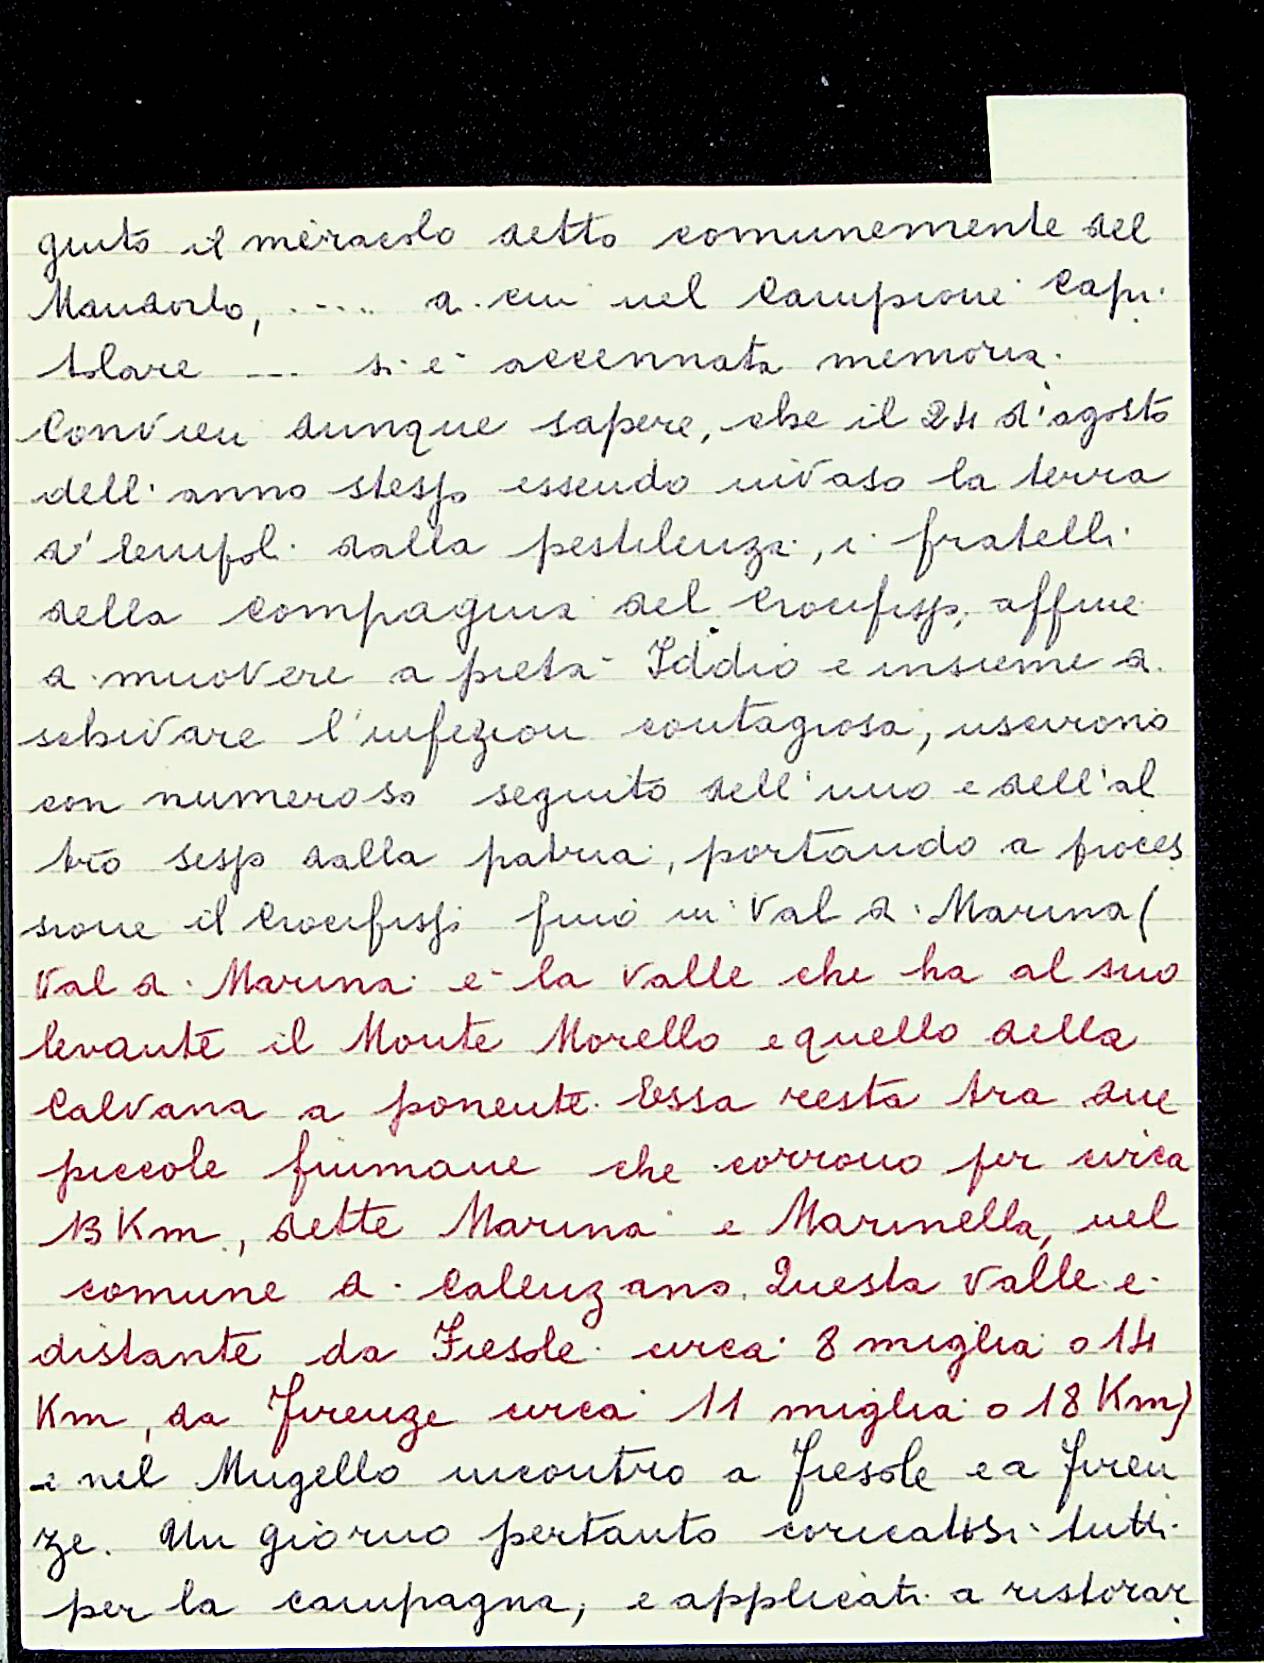 guito il miracolo detto comunemente del
Mandorlo, .... di cui nel Campione Capi-
tolare --- si è accennata memoria.
Convien dunque sapere, che il 24 d'agosto
dell'anno stesso essendo invaso la terra
d'Empoli dalla pestilenza, i fratelli
della Compagnia del Crocifisso, affine
di muovere a pietà Iddio e insieme di
schivare l'infezion contagiosa, uscirono
con numeroso seguito dell'uno e dell'al
tro sesso dalla patria, portando a proces
sione il Crocifisso fino in Val di Marina (
Val di Marina è la valle che ha al suo
levante il Monte Morello e quello della
Calvana a ponente. Essa resta tra due
piccole fiumane che corrono per circa
13 Km, dette Marina e Marinella, nel
comune di Calenzano. Questa valle è
distante da Fiesole circa 8 miglia o 14
Km, da Firenze circa 11 miglia o 18 Km)
e nel Mugello incontro a Fiesole e a Firen
ze. Un giorno pertanto coricatisi tutti
per la campagna, e applicati a ristorar